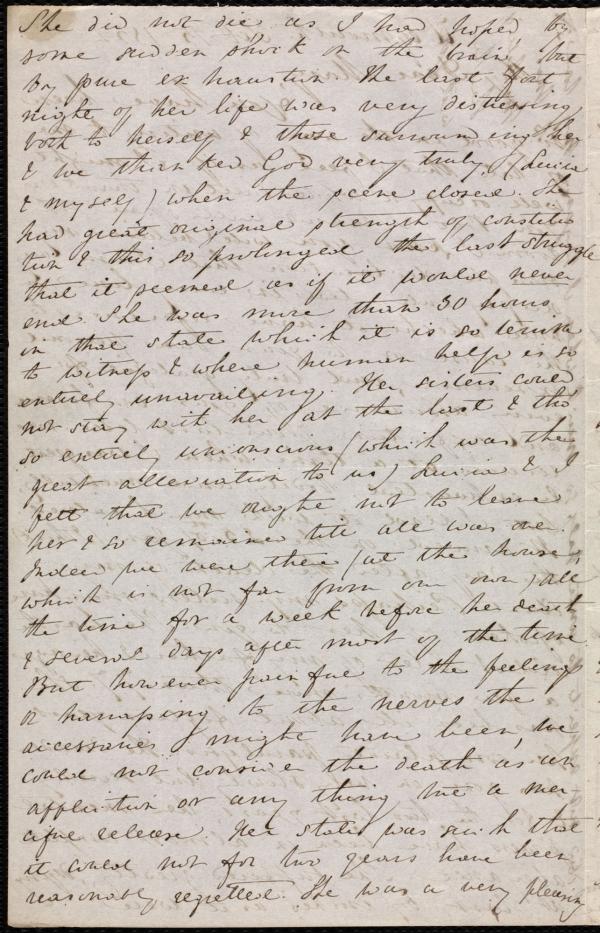 She did not die as I had hoped, by
some sudden shock on the brain but
by pure exhaustion. The last fort
night of her life was very distressing
both to herself & those surrounding her
& we thanked God very truly, (Lucia
& myself) when the scene closed. She
had great original strength of constitu
tion & this so prolonged the last struggle
that it seemed as if it would never
end. She was more than 30 hours
in that state which it is so terrible
to witness & where human help is so
entirely unavailing. Her sisters could
not stay with her at the last & tho'
so entirely unconscious (which was the
great alleviation to us) Lucia & I
felt that we ought not to leave
her & so remained till all was over.
Indeed we were there (at the house,
which is not far from our own) all
the time for a week before her death
& several days after most of the time
But however painful to the feelings
or harassing to the nerves the
accessories might have been, we
could not consider the death as an
affliction or any thing but a mer-
ciful release. Her state was such that
it could not for two years have been
reasonably regretted. She was a very pleasing